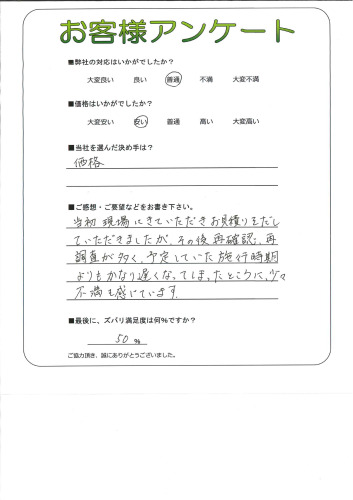 お客様アンケート
■弊社の対応はいかがでしたか？
大変良い 良い 普通 不満 大変不満
■価格はいかがでしたか？
大変安い 安い 普通 高い 大変高い
■当社を選んだ決め手は？
価格
■ご感想・ご要望などをお書き下さい。
当初現場にきていただきお見積りをだし
ていただきましたが、その後再確認、再
調査が多く、予定していた施行時期
よりもかなり遅くなってしまったところに、少々
不満も感じています。
■最後に、ズバリ満足度は何%ですか？
50 %
ご協力頂き、誠にありがとうございました。